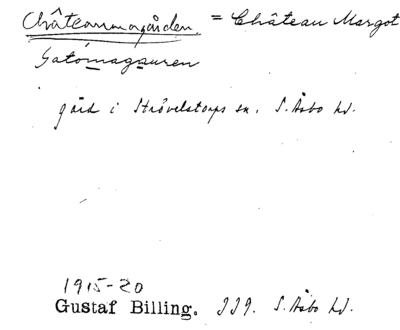 Châteaumagården. = Château Margot
Satómagauren
gård i Strövelstorps sn. S. Åsbo hd.
1915-20
Gustaf Billing. 229. S. Åsbo hd.